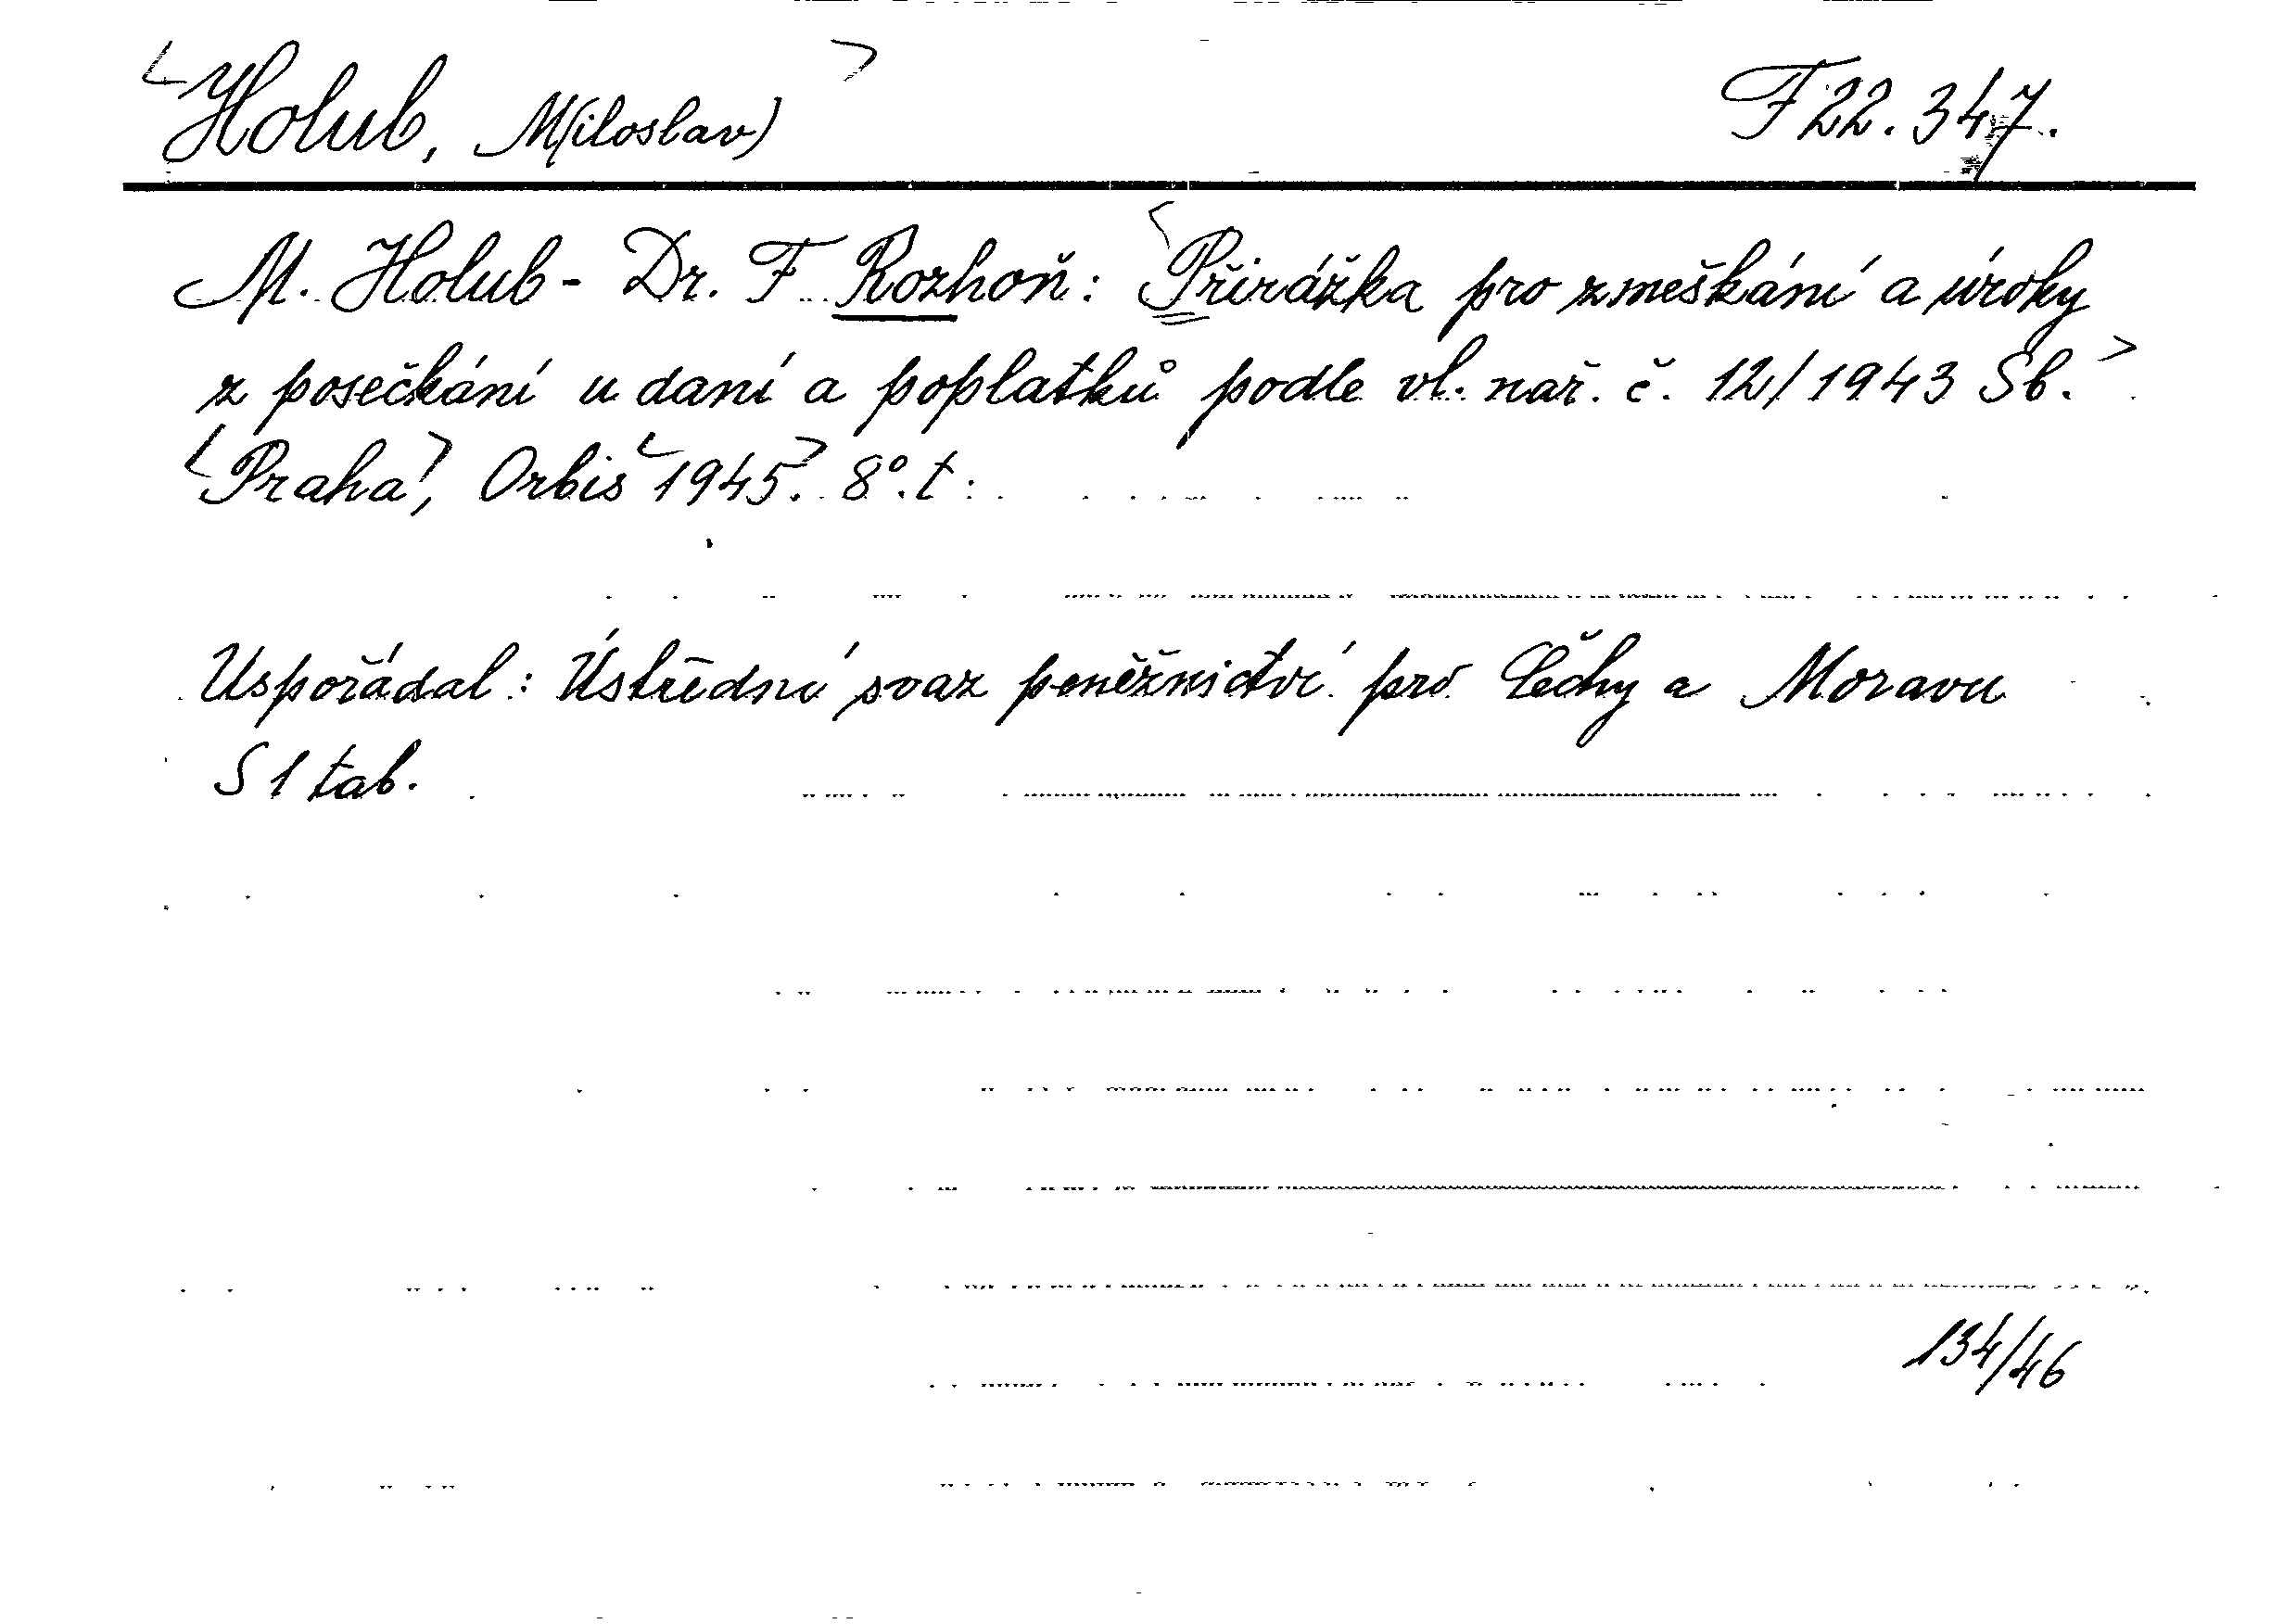 Holub, M(iloslav) F 22.347.
M. Holub - Dr. F. Rozhoň: Přirážka pro zmeškání a úroky
z posečkání u daní a poplatků podle vl. nař. č. 12/1943 Sb.
Praha, Orbis 1945. 8°. t.
Uspořádal: Ústřední svaz peněžnictví pro Čechy a Moravu
S 1 tab.
134/46